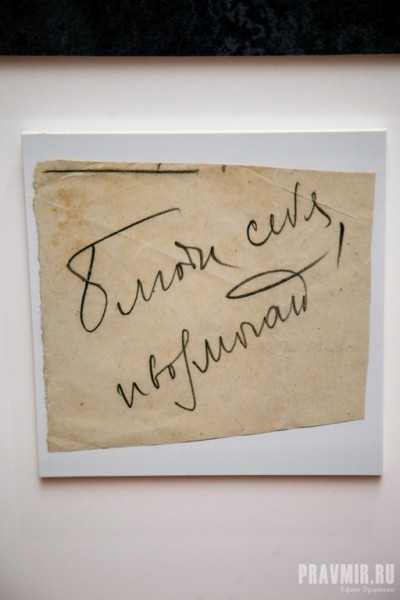 Блюди себя,
и возмогай
PRAVMIR.RU
Ефим Эрихман